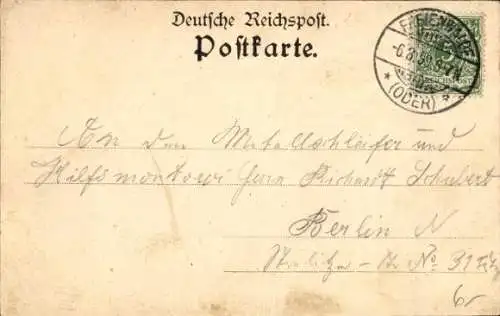 Deutsche Reichspost.
Postkarte.
FREIENWALDE
(ODER)
An den Metallschleifer und
Hilfsmonteur Herrn Richardt Schubert
Berlin N
Strelitzer Str No 31